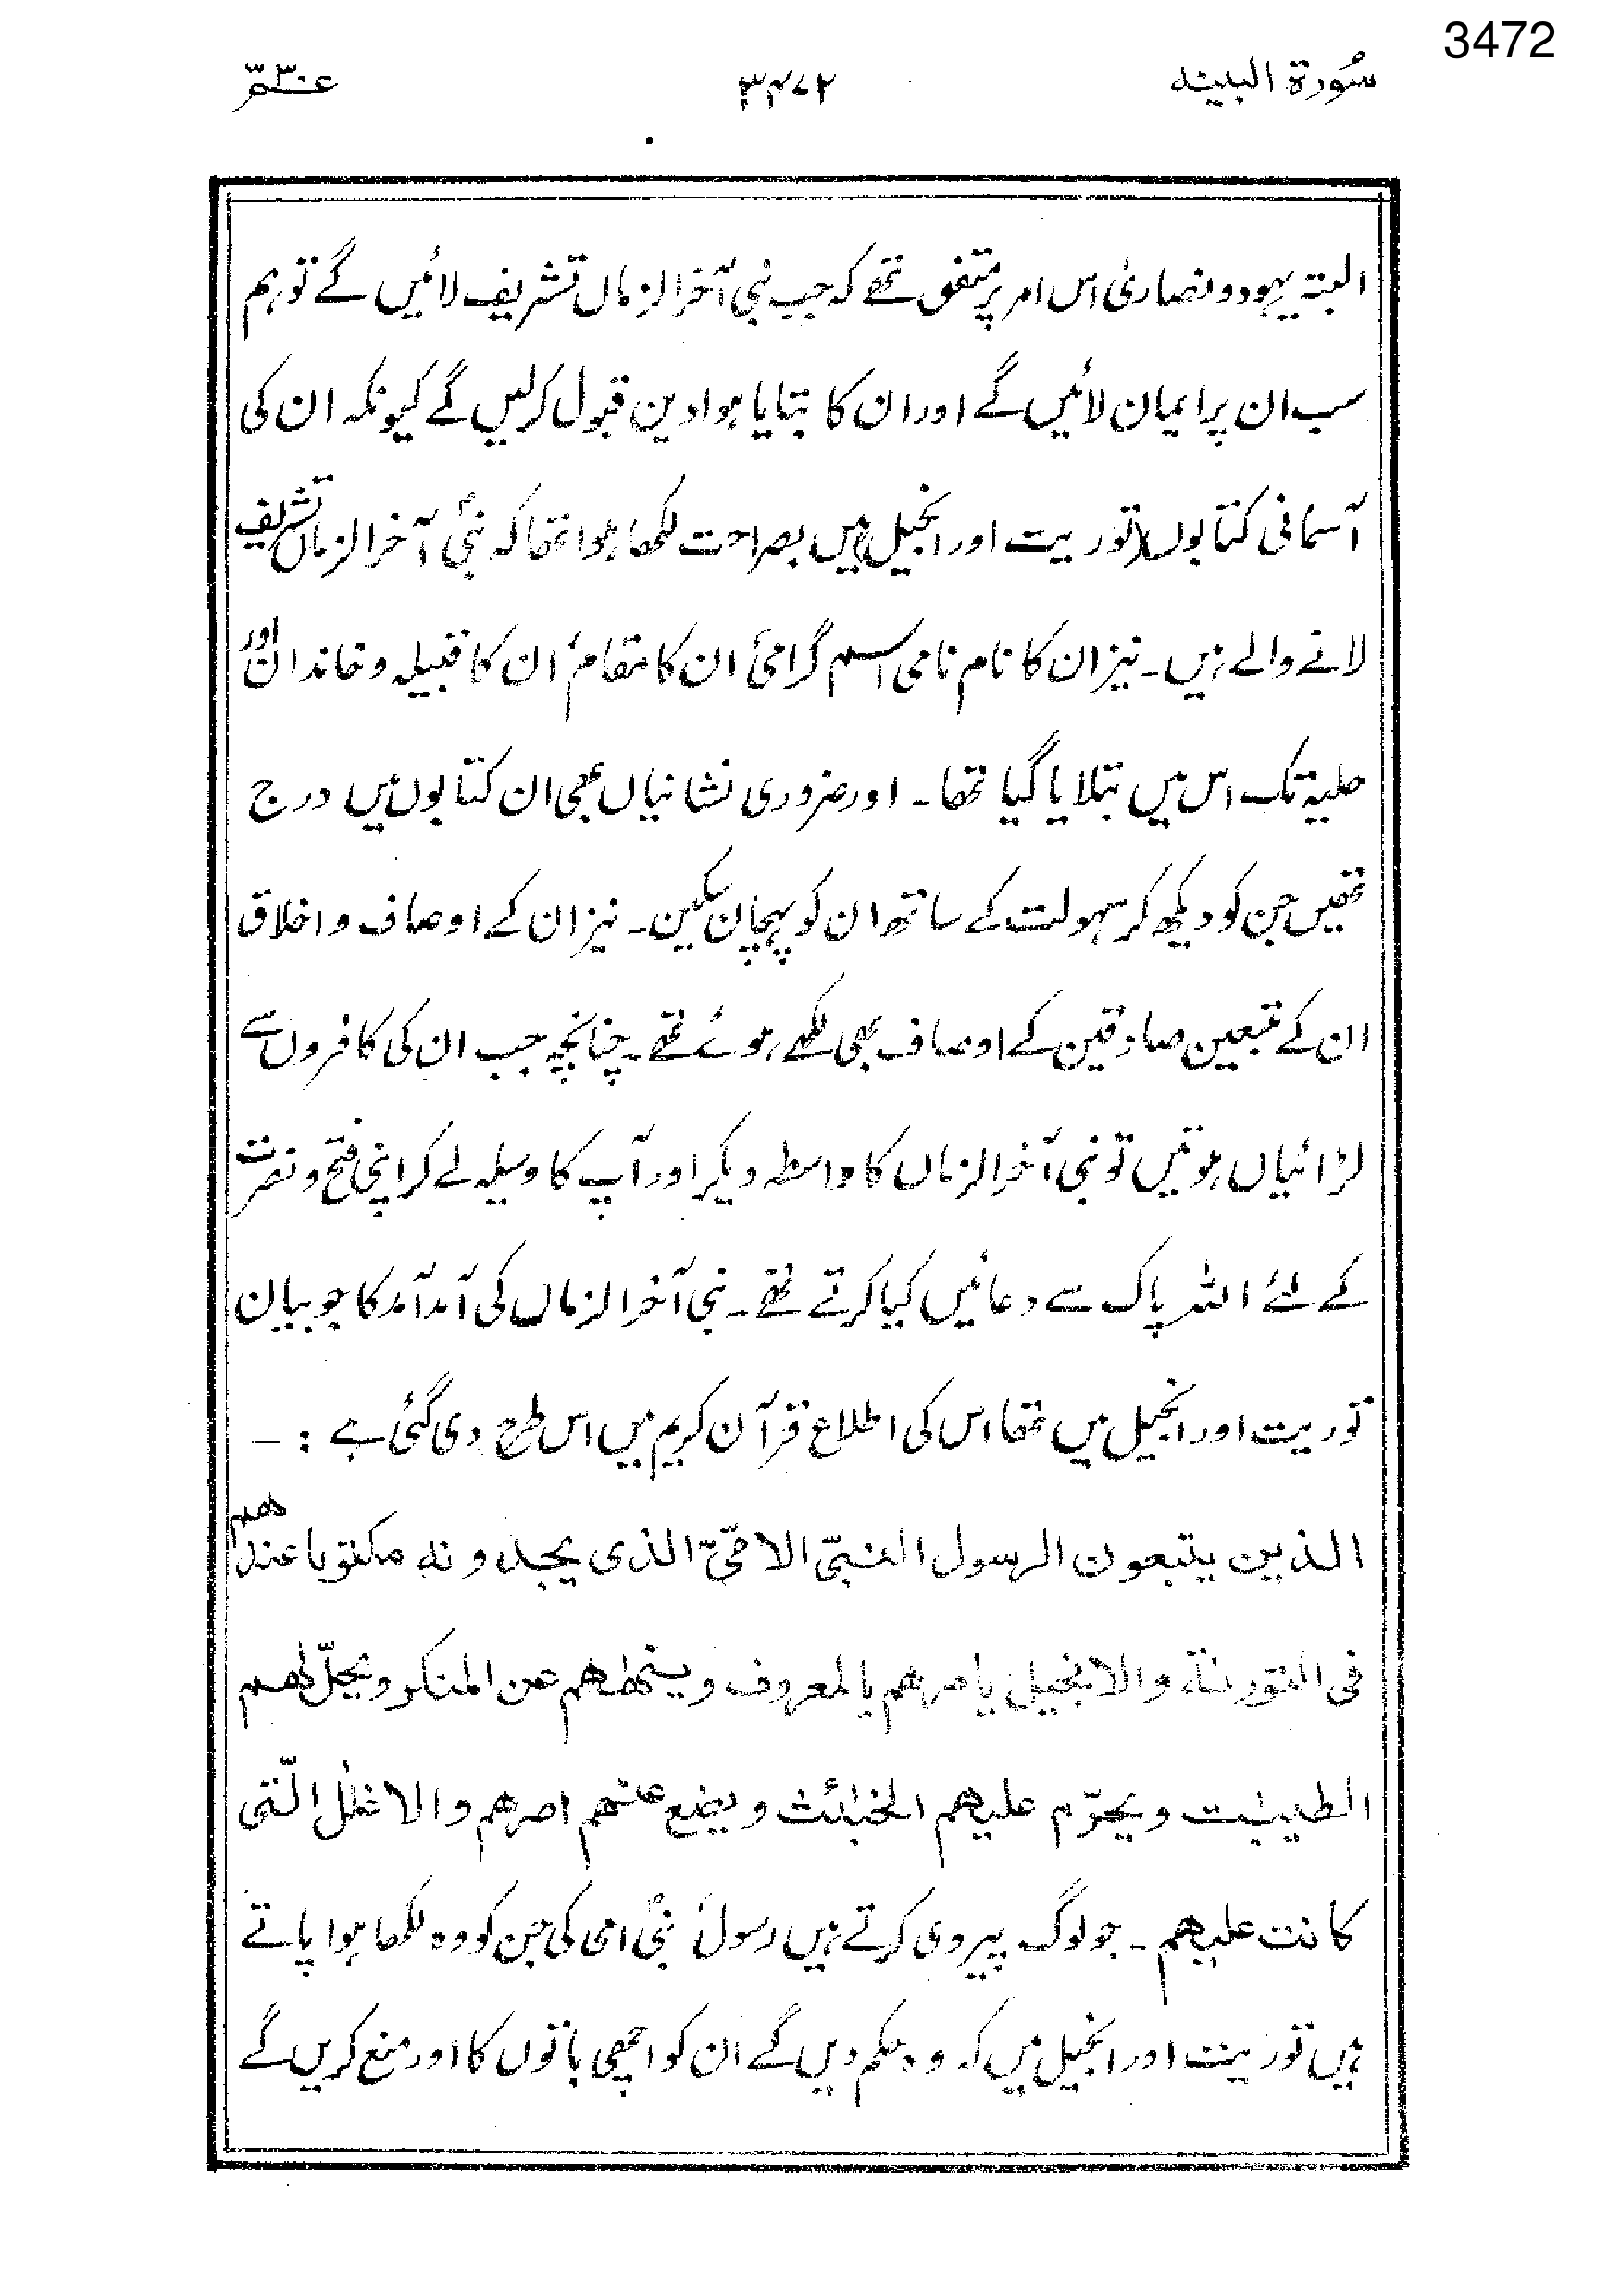 3472
سُورۃ البینہ
۳۴۷۲
عمّ ۳۰
البتہ یہود و نصاریٰ اس امر پر متفق تھے کہ جب نبی آخرالزماں تشریف لائیں گے تو ہم
سب ان پر ایمان لائیں گے اور ان کا بتایا ہوا دین قبول کرلیں گے کیونکہ ان کی
آسمانی کتابوں (توریت اور انجیل) میں بصراحت لکھا ہوا تھا کہ نبیٔ آخرالزماں تشریف
لانے والے ہیں۔ نیز ان کا نام نامی اسم گرامیٔ ان کا مقامٔ ان کا قبیلہ و خاندان اور
حلیہ تک اس میں بتلایا گیا تھا۔ اور ضروری نشانیاں بھی ان کتابوں میں درج
تھیں جن کو دیکھ کر سہولت کے ساتھ ان کو پہچان سکین۔ نیز ان کے اوصاف و اخلاق
ان کے متبعین صادقین کے اوصاف بھی لکھے ہوئے تھے۔ چنانچہ جب ان کی کافروں سے
لڑائیاں ہوتیں تو نبی آخرالزماں کا واسطہ دیکر اور آپ کا وسیلہ لے کر اپنی فتح و نصرت
کے لئے اللہ پاک سے دعائیں کیا کرتے تھے۔ نبی آخرالزماں کی آمد آمد کا جو بیان
توریت اور انجیل میں تھا اس کی اطلاع قرآن کریم میں اس طرح دی گئی ہے :—
الذین یتبعون الرسول النبیّ الامّیّ الذی یجدونہ مکتوبا عندھم
فی التورٰىة والانجیل یامرھم بالمعروف وینھٰھم عن المنکر ویحلّ لھم
الطیبٰت ویحرّم علیھم الخبٰئث ویضع عنھم اصرھم والاغلٰل الّتی
کانت علیھم۔ جو لوگ پیروی کرتے ہیں رسولؐ نبیٔ امی کی جن کو وہ لکھا ہوا پاتے
ہیں توریت اور انجیل میں کہ وہ حکم دیں گے ان کو اچھی باتوں کا اور منع کریں گے